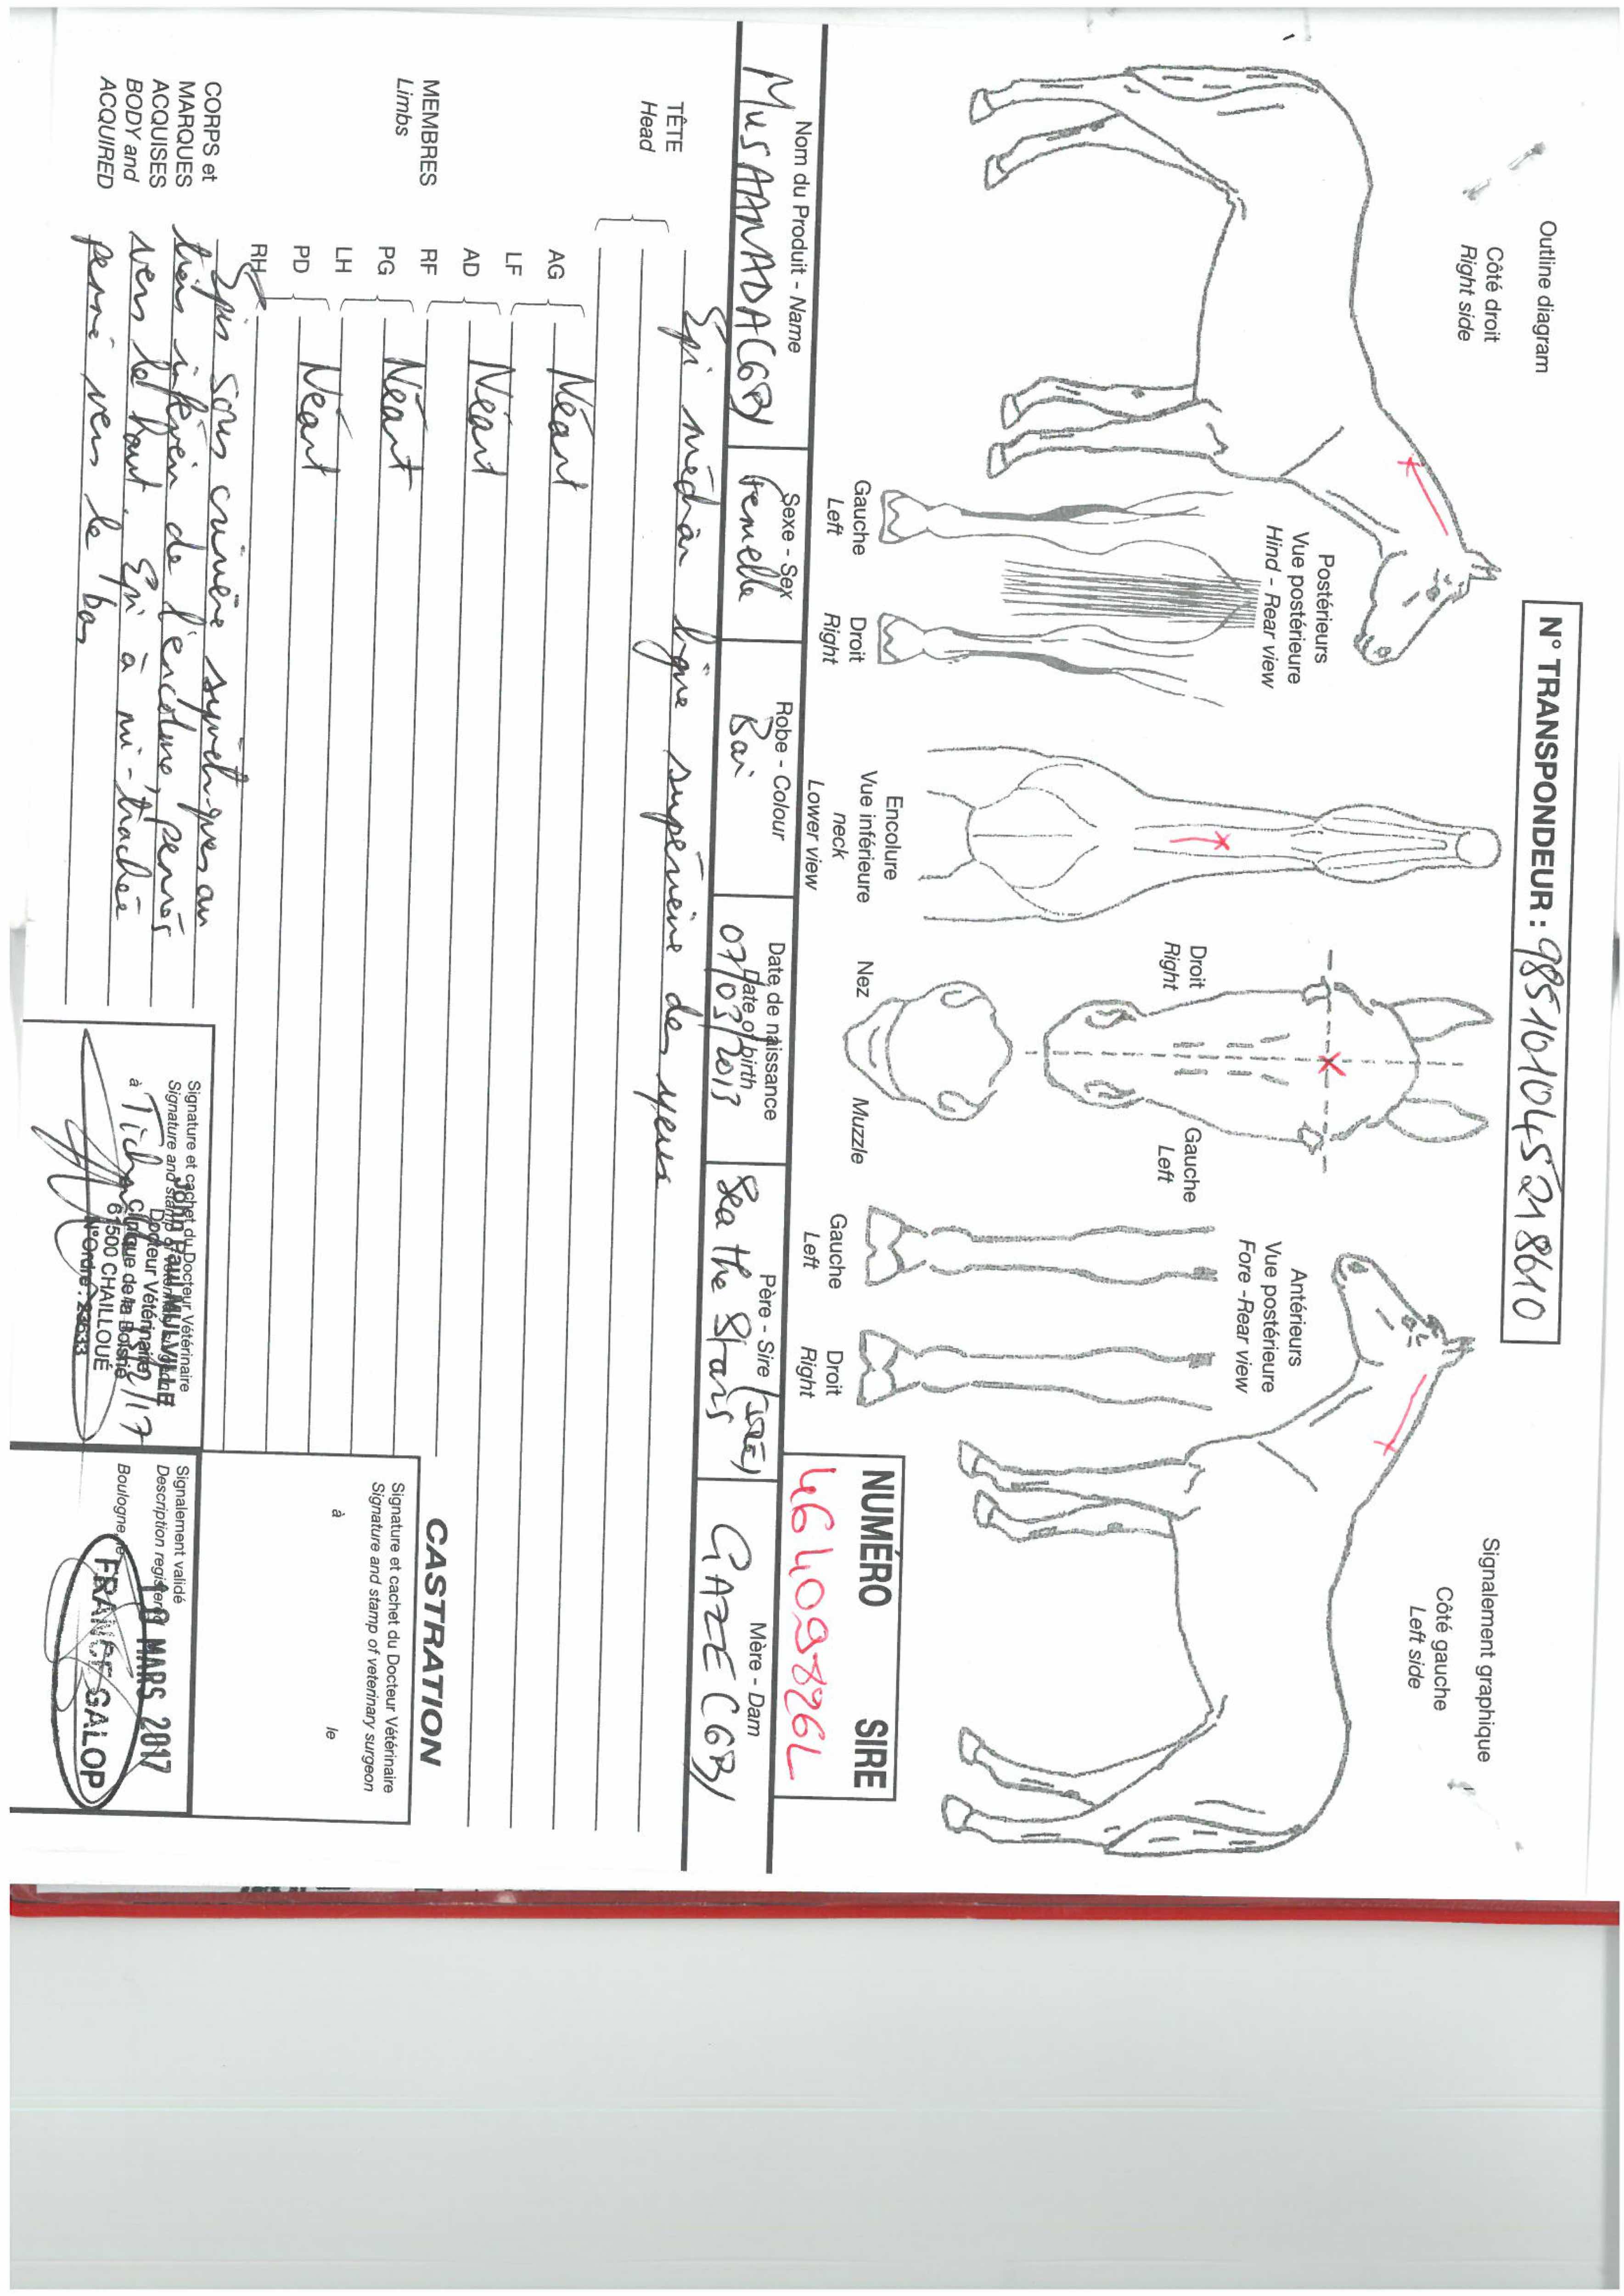 N° TRANSPONDEUR : 985101045218610
Outline diagram
Signalement graphique
Côté droit
Right side
Côté gauche
Left side
Postérieurs
Vue postérieure
Hind - Rear view
Gauche
Left
Droit
Right
Encolure
Vue inférieure
neck
Lower view
Droit
Right
Gauche
Left
Nez
Muzzle
Antérieurs
Vue postérieure
Fore - Rear view
Gauche
Left
Droit
Right
NUMÉRO SIRE
46409826L
Nom du Produit - Name
MUSANADA (GB)
Sexe - Sex
Femelle
Robe - Colour
Bai
Date de naissance
Date of birth
07/03/2013
Père - Sire
Sea the Stars (IRE)
Mère - Dam
GAZE (GB)
TÊTE
Head
Epi médian ligne supérieure des yeux
MEMBRES
Limbs
AG
LF
Néant
AD
RF
Néant
PG
LH
Néant
PD
RH
Néant
CORPS et
MARQUES
ACQUISES
BODY and
ACQUIRED
Epis sous crinière symétriques au
tiers inférieur de l'encolure, pennés
vers le haut. Epi à mi-trachée
penné vers le bas
CASTRATION
Signature et cachet du Docteur Vétérinaire
Signature and stamp of veterinary surgeon
à
le
Signature et cachet du Docteur Vétérinaire
Signature and stamp of veterinary surgeon
à
John Paul MULVILLE
Docteur Vétérinaire
Clinique de la Boisrie
61500 CHAILLOUÉ
N°Ordre : 23533
Signalement validé
Description registered
MARS 2017
Boulogne, le
FRANCE GALOP